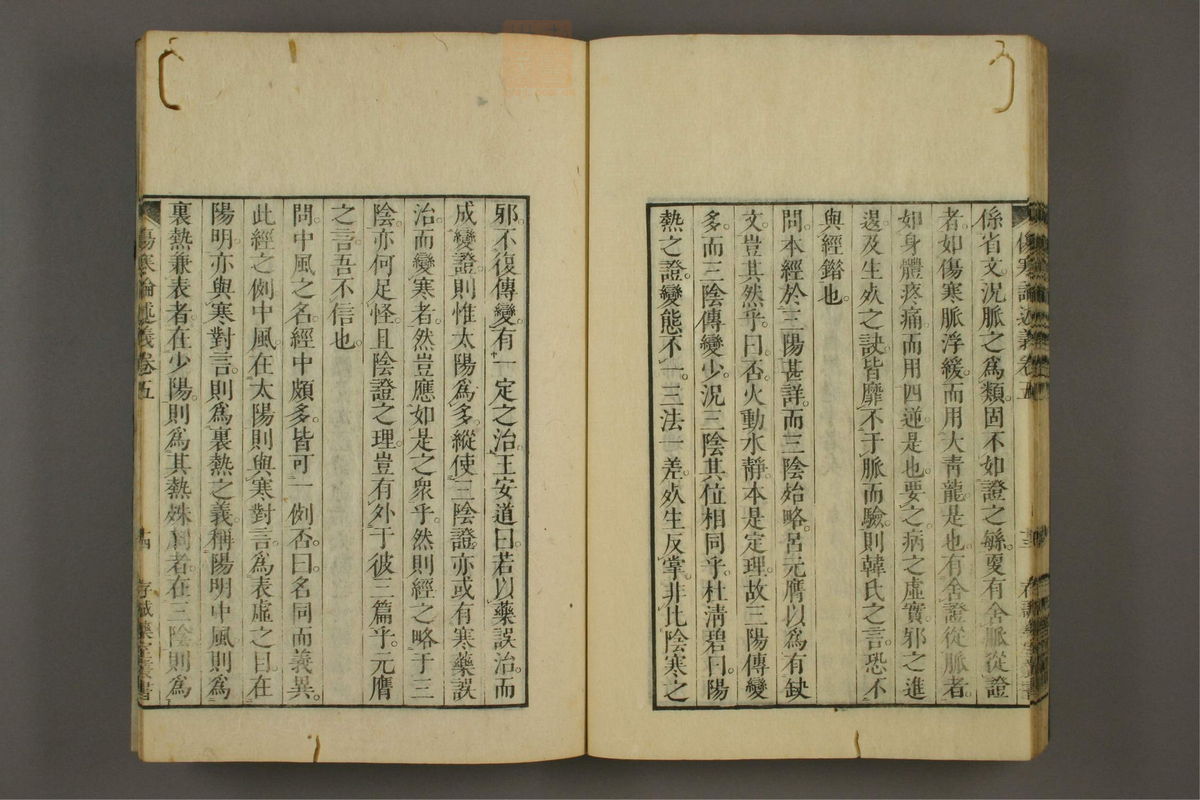 係省文。況脈之爲類。固不如證之緐。更有舍脈從證
者。如傷寒脈浮緩。而用大青龍是也。有舍證從脈者。
如身體疼痛。而用四逆是也。要之病之虛實。邪之進
退。及生死之訣。皆靡不于脈而驗。則韓氏之言。恐不
與經鍇也。
問。本經於三陽甚詳。而三陰殆略。呂元膺以爲有缺
文。豈其然乎。曰。否。火動水靜。本是定理。故三陽傳變
多。而三陰傳變少。況三陰其位相同乎。杜淸碧曰。陽
熱之證。變態不一。三法一差。死生反掌。非比陰寒之
傷寒論述義卷五
十三
存誠藥室叢書
邪。不復傳變。有一定之治。王安道曰。若以藥誤治。而
成變證。則惟太陽爲多。縱使三陰證亦或有寒藥誤
治而變寒者。然豈應如是之衆乎。然則經之略于三
陰。亦何足怪。且陰證之理。豈有外于彼三篇乎。元膺
之言。吾不信也。
問。中風之名。經中頗多。皆可一例否。曰。名同而義異。
此經之例。中風。在太陽則與寒對言。爲表虛之目。在
陽明亦與寒對言。則爲裏熱之義。稱陽明中風。則爲
裏熱兼表者。在少陽。則爲其熱殊者。在三陰。則爲
傷寒論述義卷五
十四
存誠藥室叢書